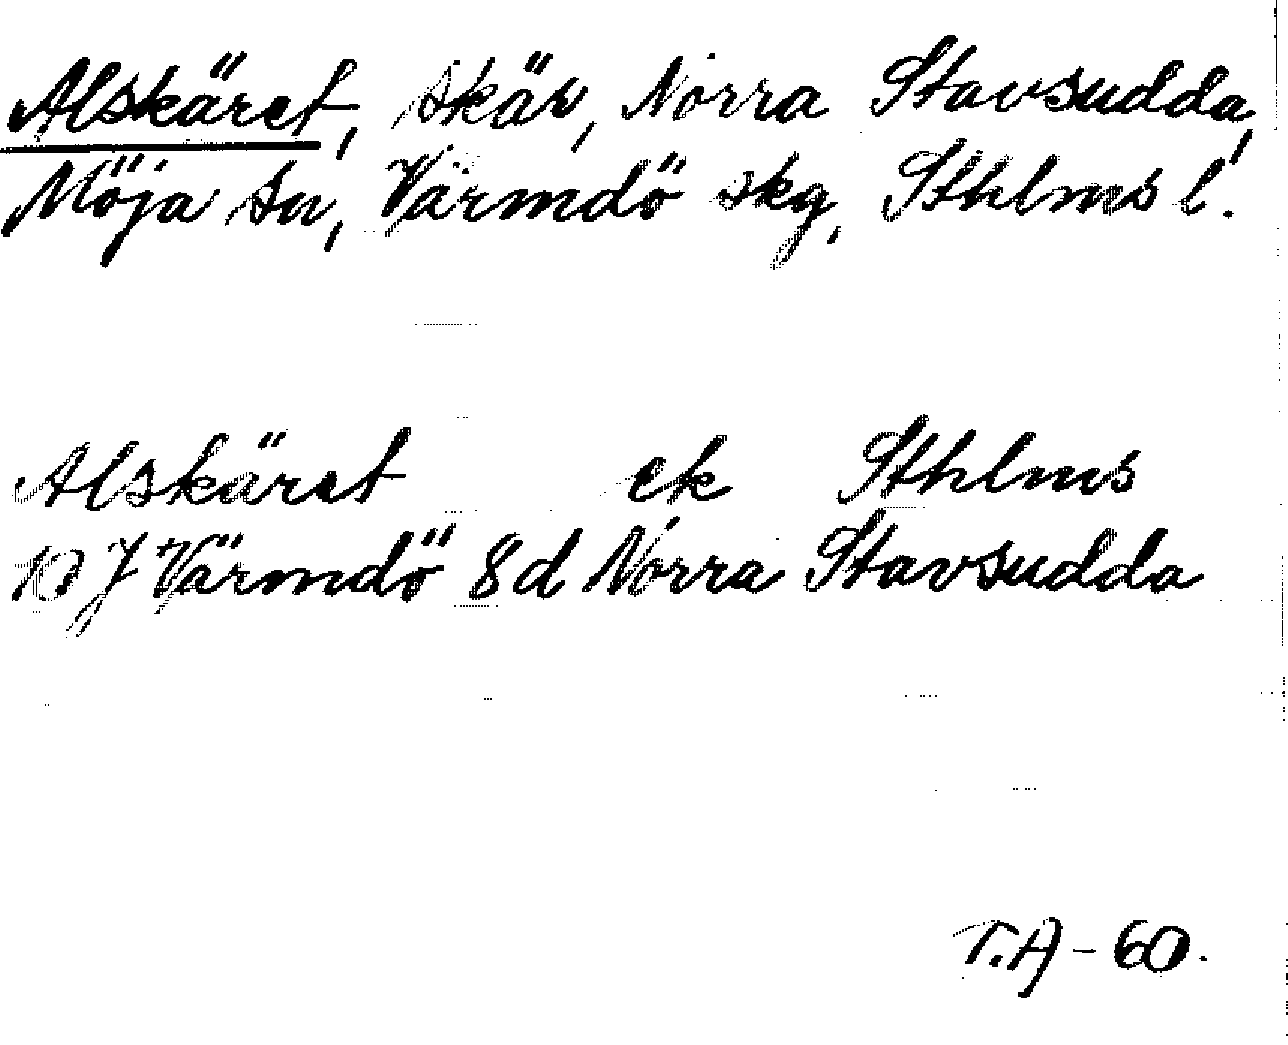 Alskäret, skär, Norra Stavsudda,
Möja sn, Värmdö skg, Sthlms l.
Alskäret ek Sthlms
10 J Värmdö 8d Norra Stavsudda
T.A-60.